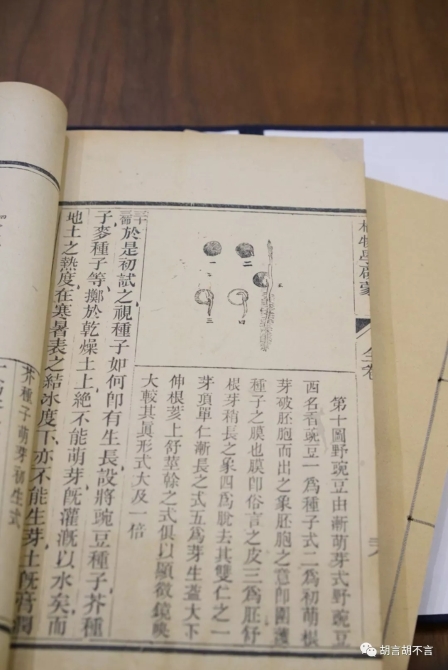 植物學啟蒙
全卷
一
二
三
四
第十圖野豌豆由漸萌芽式野豌豆
西名香豌豆一爲種子式二爲初萌根
芽破胚胞而出之象胚胞之意卽圍護
種子之膜也膜卽俗言之皮三爲胚舒
根芽稍長之象四爲脫去其雙仁之一
芽頂單仁漸長之式五爲芽生蓋大下
伸根荄上舒莖榦之式俱以顯微鏡映
大較其眞形式大及一倍
於是初試之視種子如何卽有生長設將豌豆種子芥種
子、麥種子等、擲於乾燥土上、絕不能萌芽、旣灌漑以水矣、而
地土之熱度、在寒暑表之結冰度下、亦不能生芽、土旣膏潤
芥種子萌芽初生式
胡言胡不言